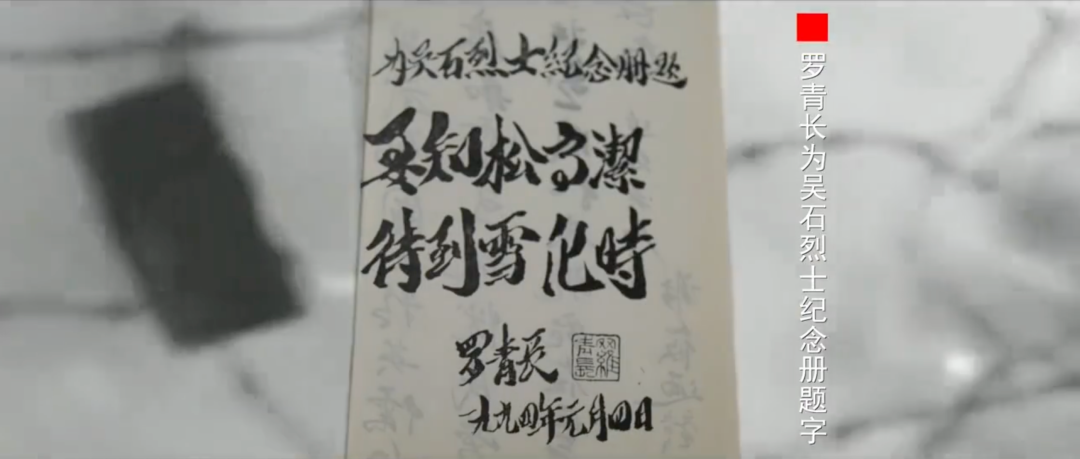 为吴石烈士紀念册题
要知松高潔
待到雪化時
罗青长
一九九四年元月四日
罗青长为吴石烈士纪念册题字